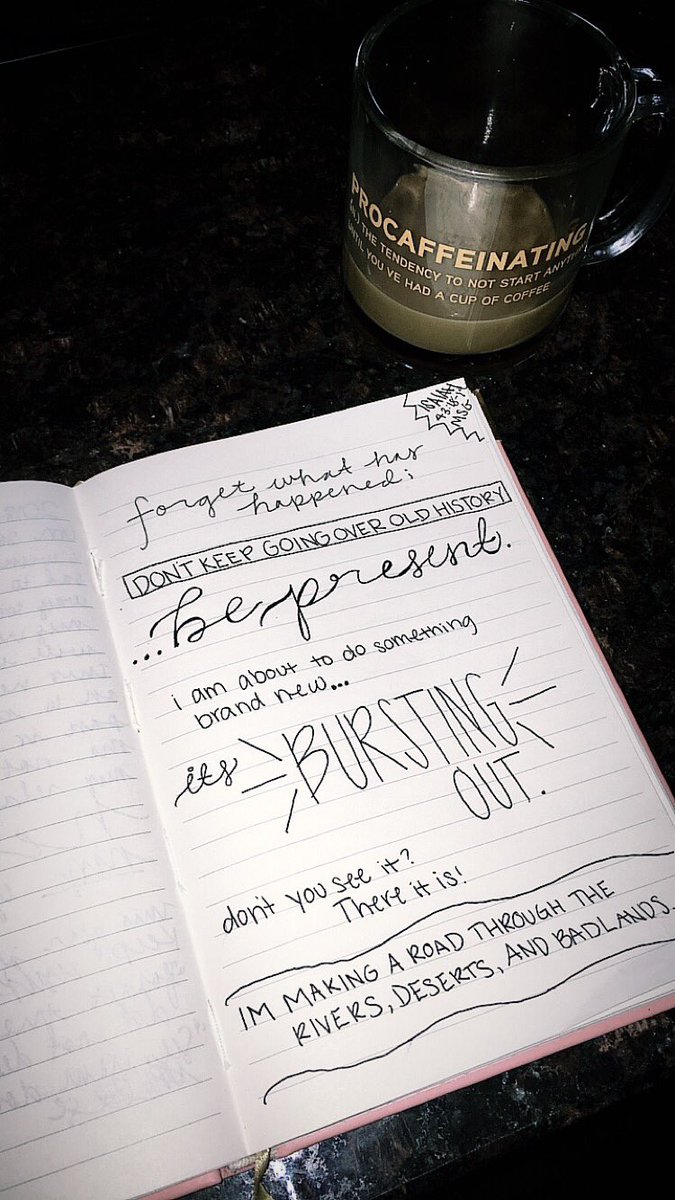 PROCAFFEINATING
(n.) THE TENDENCY TO NOT START
UNTIL YOU'VE HAD A CUP OF COFFEE
ISAIAH
MSG
forget what has
happened;
DON'T KEEP GOING OVER OLD HISTORY
...be present.
i am about to do something
brand new...
its BURSTING
OUT.
don't you see it?
There it is!
IM MAKING A ROAD THROUGH THE
RIVERS, DESERTS, AND BADLANDS.